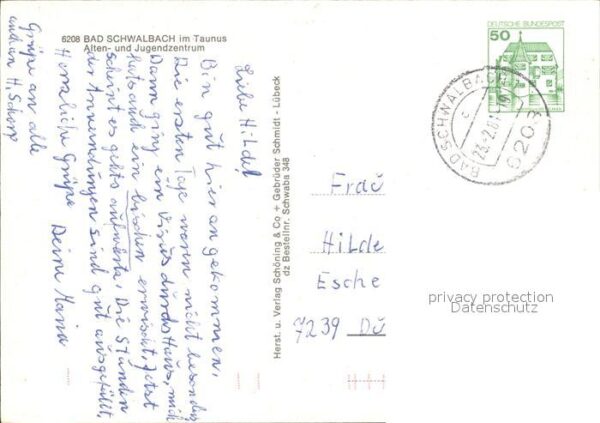 6208 BAD SCHWALBACH im Taunus
Alten- und Jugendzentrum
Liebe Hilde!
Bin gut hier angekommen,
Die ersten Tage waren nicht besonders
Dann ging ein Virus durchs Haus, mich
hats auch ein bischen erwischt, Jetzt
scheint es gehts aufwärts, Die Stunden
der Anwendungen sind gut ausgefüllt,
Herzliche Grüße Deine Maria
Grüße an alle
auch an H.
Herst. u. Verlag Schöning & Co + Gebrüder Schmidt - Lübeck
dz Bestellnr. Schwaba 348
DEUTSCHE BUNDESPOST
50
BAD SCHWALBACH
23.-2.81
6208
c
Frau
Hilde
Esche
7239 Dü
privacy protection
Datenschutz